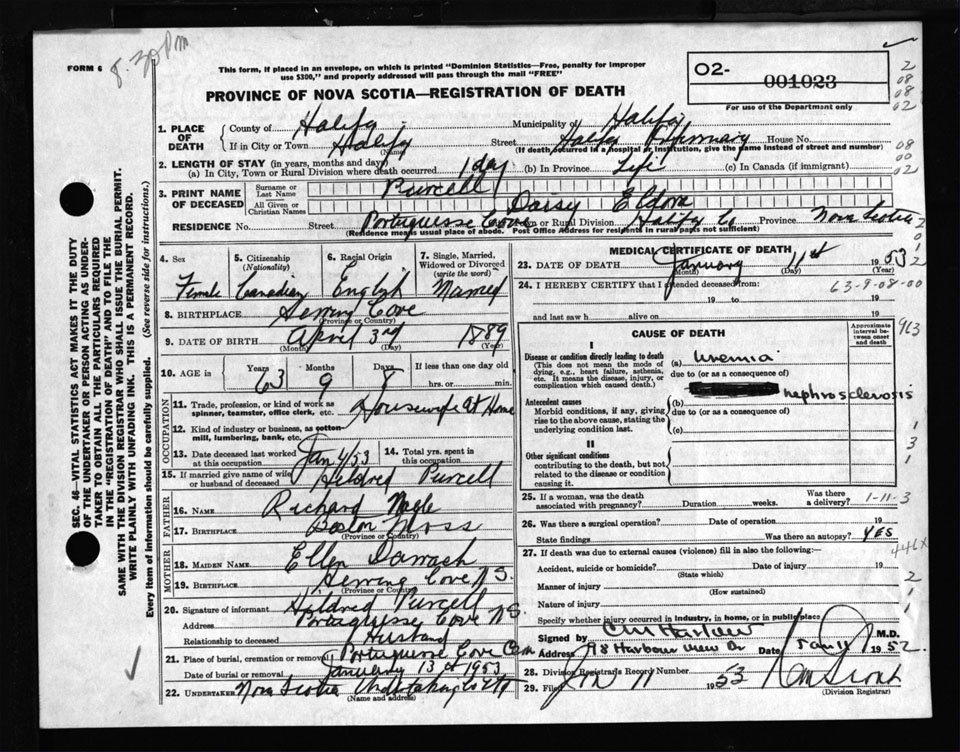 8.30 Pm
FORM 6
This form, if placed in an envelope, on which is printed "Dominion Statistics—Free, penalty for improper
use $300," and properly addressed will pass through the mail "FREE"
O2-
001023
For use of the Department only
2
08
08
02
PROVINCE OF NOVA SCOTIA—REGISTRATION OF DEATH
1. PLACE OF DEATH
County of Halifax Municipality of Halifax
If in City or Town Halifax Street Halifax Infirmary House No.
(Name) (If death occurred in a hospital or institution, give the name instead of street and number)
08
00
02
2. LENGTH OF STAY (in years, months and days)
(a) In City, Town or Rural Division where death occurred 1 day (b) In Province Life (c) In Canada (if immigrant)
3. PRINT NAME OF DECEASED
Surname or Last Name Purcell
All Given or Christian Names Daisy Eldora
RESIDENCE No. Street Portuguesse Cove or Rural Division Halifax Co Province Nova Scotia
(Residence means usual place of abode. Post Office Address for residents in rural parts not sufficient)
2
0
1
2
4. Sex Female
5. Citizenship (Nationality) Canadian
6. Racial Origin English
7. Single, Married, Widowed or Divorced (write the word) Married
8. BIRTHPLACE Herring Cove
(Province or Country)
9. DATE OF BIRTH April 3rd 1889
(Month) (Day) (Year)
10. AGE in Years 63 Months 9 Days 8 If less than one day
hrs. or min.
OCCUPATION
11. Trade, profession, or kind of work as spinner, teamster, office clerk, etc. Housewife at Home
12. Kind of industry or business, as cotton mill, lumbering, bank, etc.
13. Date deceased last worked at this occupation Jan 4/53
14. Total yrs. spent in this occupation
15. If married give name of wife or husband of deceased Hildred Purcell
FATHER
16. NAME Richard
17. BIRTHPLACE Boston Mass
(Province or Country)
MOTHER
18. MAIDEN NAME Ellen Darrach
19. BIRTHPLACE Herring Cove N S.
(Province or Country)
20. Signature of informant Hildred Purcell
Address Portuguesse Cove N S.
Relationship to deceased Husband
21. Place of burial, cremation or removal Portuguese Cove Cem
Date of burial or removal January 13th 1953
22. UNDERTAKER Nova Scotia Undertaking Co Ltd
(Name and address)
MEDICAL CERTIFICATE OF DEATH
23. DATE OF DEATH January 11th 1953
(Month) (Day) (Year)
24. I HEREBY CERTIFY that I attended deceased from:
63-9-08-00
19 to 19
and last saw h alive on 19
CAUSE OF DEATH
Approximate interval between onset and death
963
I
Disease or condition directly leading to death
(This does not mean the mode of dying, e.g., heart failure, asthenia, etc. It means the disease, injury, or complication which caused death.)
(a) uremia
due to (or as a consequence of)
Antecedent causes
Morbid conditions, if any, giving rise to the above cause, stating the underlying condition last.
(b) nephrosclerosis
due to (or as a consequence of)
(c)
II
Other significant conditions
contributing to the death, but not related to the disease or condition causing it.
1
3
1
25. If a woman, was the death associated with pregnancy? Duration weeks. Was there a delivery?
1-11-3
26. Was there a surgical operation? Date of operation 19
State findings Was there an autopsy? YES
446X
27. If death was due to external causes (violence) fill in also the following:—
Accident, suicide or homicide? Date of injury 19
(State which)
Manner of injury
(How sustained)
Nature of injury
Specify whether injury occurred in industry, in home, or in public place
2
1
1
Signed by M.D.
Address 98 Harbour View Dr Date Jan 11 1952.
28. Division Registrar's Record Number
29. Filed JAN 11 1953
(Division Registrar)
SEC. 46—VITAL STATISTICS ACT MAKES IT THE DUTY
OF THE UNDERTAKER OR PERSON ACTING AS UNDER-
TAKER TO OBTAIN ALL THE PARTICULARS REQUIRED
IN THE "REGISTRATION OF DEATH" AND TO FILE THE
SAME WITH THE DIVISION REGISTRAR WHO SHALL ISSUE THE BURIAL PERMIT.
WRITE PLAINLY WITH UNFADING INK. THIS IS A PERMANENT RECORD.
Every item of information should be carefully supplied. (See reverse side for instructions.)